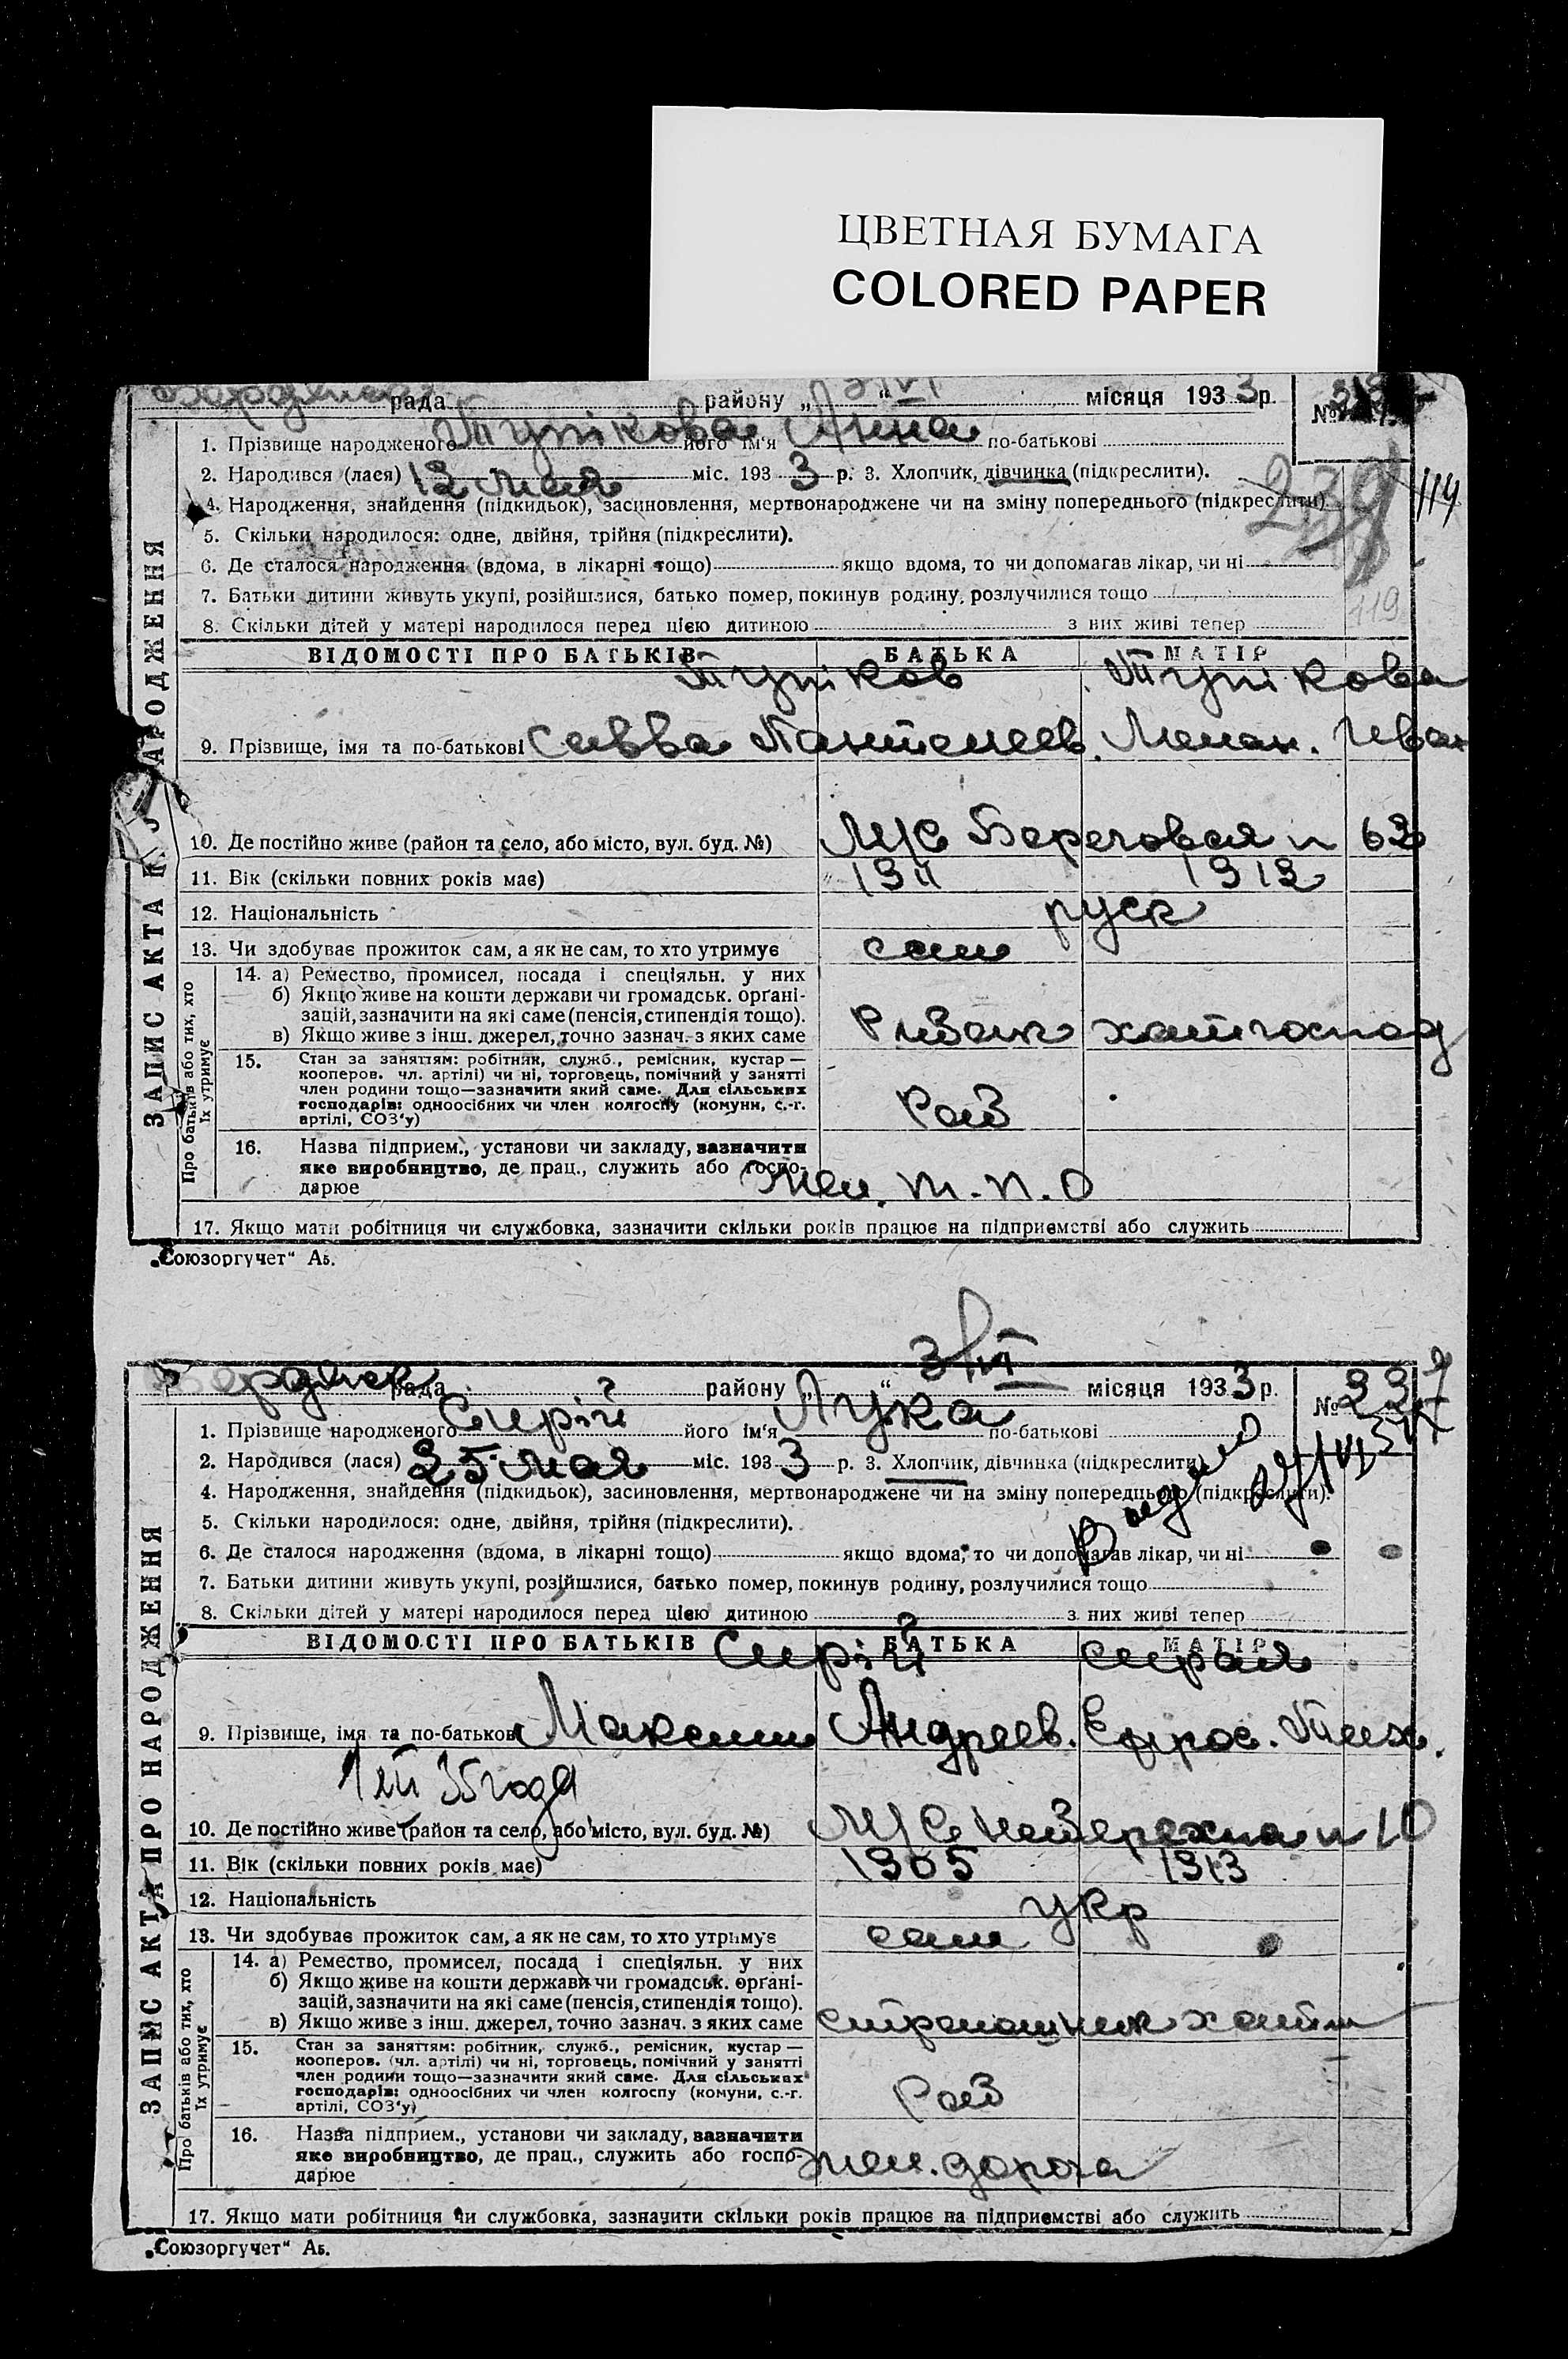 ЦВЕТНАЯ БУМАГА
COLORED PAPER
рада району „ “ 3/VI місяця 1933 р. №
1. Прізвище народженого Тупікова його ім'я Анна по-батькові
2. Народився (лася) 12 мая міс. 1933 р. 3. Хлопчик, дівчинка (підкреслити).
239
114
4. Народження, знайдення (підкидьок), засиновлення, мертвонароджене чи на зміну попереднього (підкреслити)
5. Скільки народилося: одне, двійня, трійня (підкреслити).
6. Де сталося народження (вдома, в лікарні тощо) якщо вдома, то чи допомагав лікар, чи ні
7. Батьки дитини живуть укупі, розійшлися, батько помер, покинув родину, розлучилися тощо
119
8. Скільки дітей у матері народилося перед цією дитиною з них живі тепер
ВІДОМОСТІ ПРО БАТЬКІВ БАТЬКА МАТІР
Тупіков Тупікова
9. Прізвище, імя та по-батькові Савва Пантелеев. Мелан. Иван
10. Де постійно живе (район та село, або місто, вул. буд. №) Береговая 62
11. Вік (скільки повних років має) 1911 1912
12. Національність руск
13. Чи здобуває прожиток сам, а як не сам, то хто утримує сам
14. а) Ремество, промисел, посада і спеціяльн. у них
б) Якщо живе на кошти держави чи громадськ. орґані-
зацій, зазначити на які саме (пенсія, стипендія тощо).
в) Якщо живе з інш. джерел, точно зазнач. з яких саме хатнгоспод
15. Стан за заняттям: робітник, служб., ремісник, кустар —
кооперов. чл. артілі) чи ні, торговець, помічний у занятті
член родини тощо—зазначити який саме. Для сільських
господарів: одноосібних чи член колгоспу (комуни, с.-г.
артілі, СОЗ'у) Роб
16. Назва підприєм., установи чи закладу, зазначити
яке виробництво, де прац., служить або госпо-
дарює Жел. т.п.о
17. Якщо мати робітниця чи службовка, зазначити скільки років працює на підприємстві або служить
ЗАПИС АКТА ПРО НАРОДЖЕННЯ
Про батьків або тих, хто їх утримує
„Союзоргучет“ Аб.
Бердянск рада району „ “ 3/VI місяця 1933 р. № 237
1. Прізвище народженого Сирій його ім'я Лука по-батькові
2. Народився (лася) 25 мая міс. 1933 р. 3. Хлопчик, дівчинка (підкреслити)
4. Народження, знайдення (підкидьок), засиновлення, мертвонароджене чи на зміну попереднього (підкреслити).
5. Скільки народилося: одне, двійня, трійня (підкреслити).
6. Де сталося народження (вдома, в лікарні тощо) якщо вдома, то чи допомагав лікар, чи ні
7. Батьки дитини живуть укупі, розійшлися, батько помер, покинув родину, розлучилися тощо
8. Скільки дітей у матері народилося перед цією дитиною з них живі тепер
ВІДОМОСТІ ПРО БАТЬКІВ БАТЬКА МАТІР
Сирій Сирая
9. Прізвище, імя та по-батькові Максим Андреев. Ефрос. Тих.
35 года
10. Де постійно живе (район та село, або місто, вул. буд. №) 10
11. Вік (скільки повних років має) 1905 1913
12. Національність укр
13. Чи здобуває прожиток сам, а як не сам, то хто утримує сам
14. а) Ремество, промисел, посада і спеціяльн. у них
б) Якщо живе на кошти держави чи громадськ. орґані-
зацій, зазначити на які саме (пенсія, стипендія тощо).
в) Якщо живе з інш. джерел, точно зазнач. з яких саме хатн
15. Стан за заняттям: робітник, служб., ремісник, кустар —
кооперов. (чл. артілі) чи ні, торговець, помічний у занятті
член родини тощо—зазначити який саме. Для сільських
господарів: одноосібних чи член колгоспу (комуни, с.-г.
артілі, СОЗ'у) Роб
16. Назва підприєм., установи чи закладу, зазначити
яке виробництво, де прац., служить або госпо-
дарює жел. дорога
17. Якщо мати робітниця чи службовка, зазначити скільки років працює на підприємстві або служить
ЗАПИС АКТА ПРО НАРОДЖЕННЯ
Про батьків або тих, хто їх утримує
„Союзоргучет“ Аб.